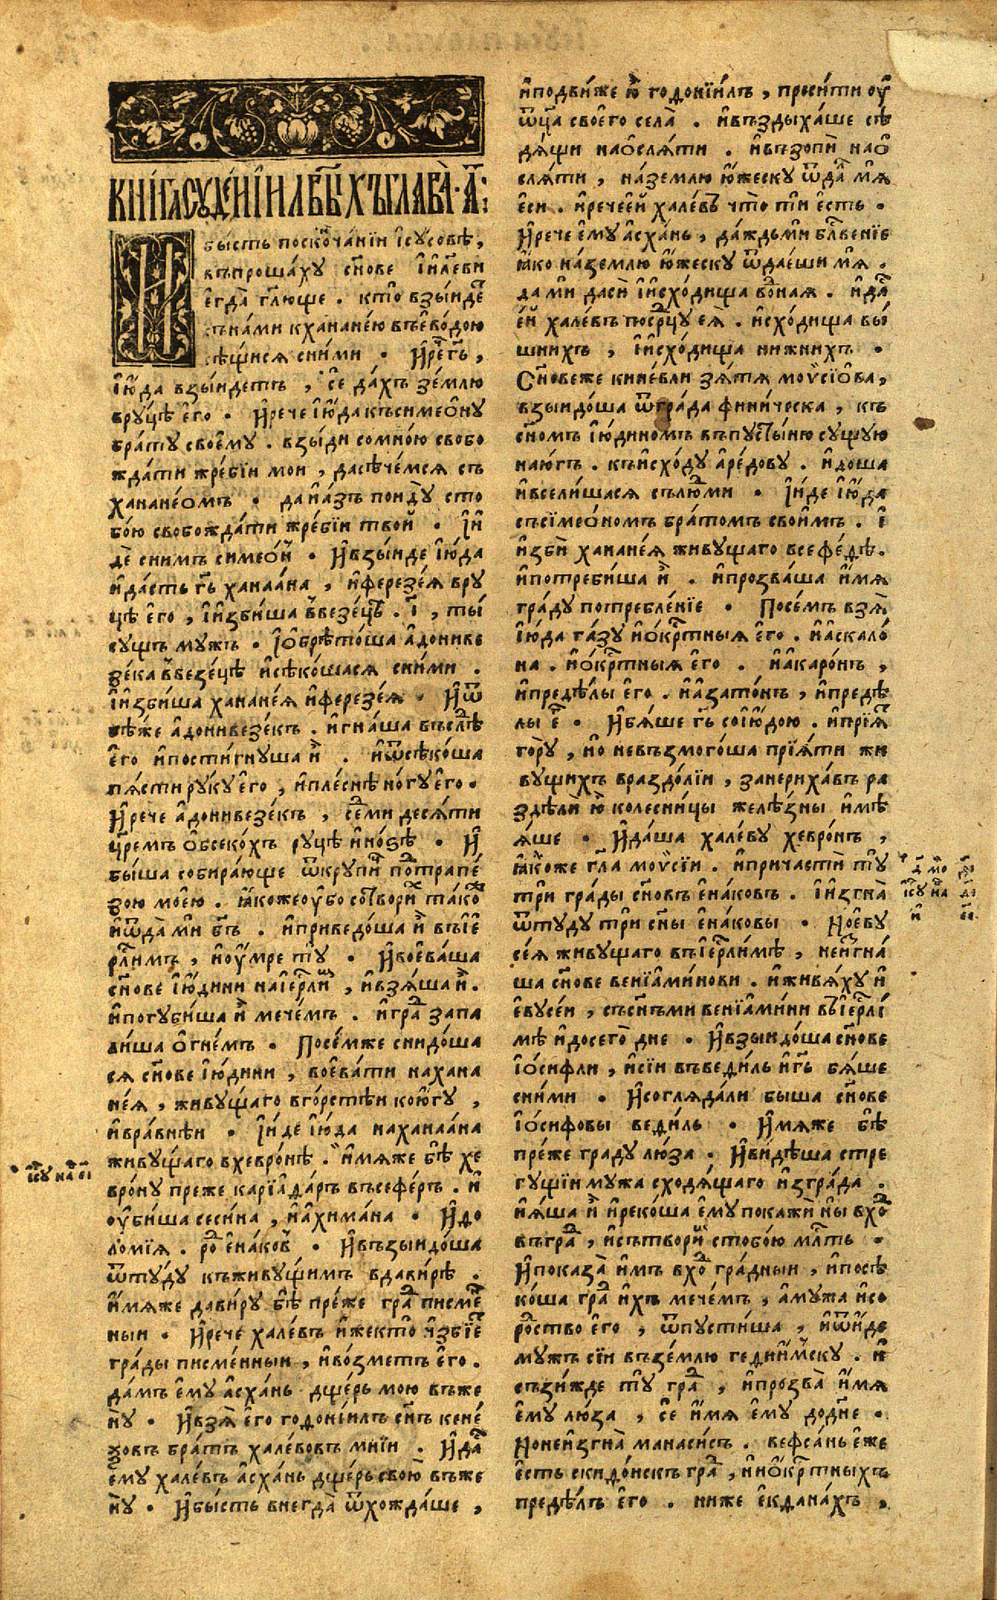 КНИГА СУДЕ́Й І҆И҃ЛВЫХЪ ГЛАВА̀ · А҃ :
бы́сть поскоча́нїи і҆сусовѣ ,
въпроша́ху сн҃ове і҆и҃леви
є҆гда̀ гл҃юще . кто̀ взы́иде
съна́ми кханане́ю въево́дою
сѣщися сни́ми · И҆рече гь ,
і҆ю́да взы́идетъ , се да́хъ зе́млю
вруцѣ̀ є҆го · И҆рече і҆ю́да къси́меѻ҆ну
бра́ту своемꙋ̀ . взы́ди сомно́ю свобо
жда́ти жре́бїи мои , дасѣче́мся съ
ханане́ѻмъ · даи҆а́зъ пои́ду сто
бо́ю свобожда́ти жре́бїи твои̑ · І҆и
дѐ сни́мъ симеѻ҆н · И҆взы́иде і҆ю́да
и҆да́сть гь ханаа́на , и҆ферезе́я вру
цѣ̀ є҆го , і҆и҆зби́ша ввезе́цѣ . і҃ , ты́
сущъ му́жъ · І҆ѻ҆брѣто́ша а҆дониве
зе́ка ввезе́цѣ и҆сѣко́шася сни́ми .
і҆и҆зби́ша ханане́я и҆ферезе́я · И҆ѿ
бѣ́же а҆донивезе́къ . и҆гна́ша въслѣ
є҆го и҆пости́гнуша и҆ . и҆ѿсѣко́ша
пя́сти руку̀ є҆го , и҆пле́снѣ но́гу є҆го ·
И҆рече а҆донивезе́къ , се́ми деся́ти
цр҃емъ ѻ҆бсеко́хъ ру́цѣ и҆но́зѣ · И҆
бы́ша собира́юще ѿкрупи̑ потрапе́
зою мое́ю . ꙗ҆́кожеоу҆бо сотвори́ та́ко
и҆ѿда́ ми бг҃ъ . и҆приведо́ша и҆ въїе
рл҃имъ , и҆оу҆мре ту̀ · И҆воева́ша
сн҃ове і҆ю́дини на і҆ерл҃имъ , и҆взя́ша и҆ .
и҆погуби́ша и҆ мече́мъ . и҆гра́ запа
ли́ша ѻ҆гне́мъ · Посе́мже снидо́ша
ся сн҃ове і҆ю́дини , воева́ти нахана
не́я , живу́щаго вго́рстѣи кою́гу ,
и҆вра́внѣи · І҆и́де і҆ю́да наханаа́на
живу́щаго вхевро́нѣ . и҆́мяже бѣ̀ хе
вро́ну преже карїада́ръ въсефе́ръ . и҆
оу҆би́ша сеси́на , и҆а҆химана · И҆до
ло́мїя . ро́ є҆на́ков · И҆възыидо́ша
ѿту́ду къживу́щимъ вдави́рѣ .
и҆́мяже дави́ру бѣ̀ пре́же гра́ писме́
ныи · И҆рече хале́въ и҆жекто̀ и҆збїе
гра́ды писме́нныи , и҆во́зметъ є҆го .
да́мъ є҆му а҆сха́нь дще́рь мою̀ въже
ну̀ · И҆взя́ є҆го годонїи́лъ сн҃ъ кене́
зовъ бра́тъ хале́вовъ мнїи . И҆да́
є҆му хале́въ а҆сха́нь дще́рь свою̀ въже
ну̀ · И҆бысть внегда̀ ѿхожда́ше ,
и҆подви́же ю҆ годонїи́лъ , проси́ти оу҆
ѿц҃а своего села̀ . и҆въздыха́ше сѣ
дя́щи наѻ҆сля́ти . и҆възопѝ наѻ҆
сля́ти , на́землю ю҆́жеску ѿда́ мя
єси . и҆речее҆й хале́въ что̀ ти́ є҆сть ·
И҆рече є҆му а҆сха́нь , да́ждьми бл҃вение
ꙗ҆ко на́землю ю҆жеску ѿдае́ши мя .
да ми дасѝ і҆исхо́дища во́дная . и҆да́
е҆й хале́въ посрⷣцу ея̀ . и҆схо́дища вы́
шнихъ , і҆исхо́дища ни́жнихъ ·
Сн҃овеже кине́вли зя́тя моѵсїо́ва ,
взыидо́ша ѿгра́да фини́ческа , къ
сн҃омъ і҆ю́диномъ въпусты́ню су́щую
наю́гъ . къи҆схо́ду а҆ре́дову . и҆ доша
и҆всели́шася сълю́ми · І҆и́де і҆ю́да
съсїмеѻ҆номъ бра́томъ свои́мъ . і҆
и҆збѝ ханане́я живу́щаго всефе́дѣ .
и҆потреби́ша и҆ . и҆прозва́ша и҆́мя
гра́ду потребле́нїе · Посе́мъ взя̀
і҆ю́да га́зу и҆ѻ҆крⷭтныя є҆го . и҆а҆скало́
на . и҆ѻ҆крⷭтныя є҆го . и҆а҆каро́нъ ,
и҆предѣ́лы є҆го . и҆а҆зато́нъ , и҆предѣ́
лы є҆го · И҆бя́ше гь соі҆ю́дою . и҆прїя́т
го́ру , и҆о невъзмого́ша прїя́ти жи
ву́щихъ враздо́лїи , занериха́въ ра
здѣлѝ ю҆ колесни́цы желѣ́зны и҆мѣ
я́ше · И҆да́ша хале́ву хевро́нъ ,
ꙗ҆́коже гл҃а моѵсїи . и҆прича́сти ту̀
три гра́ды сн҃овъ є҆на́ковъ . І҆изгна̀
ѿту́ду три́ сн҃ы є҆на́ковы · И҆оеву
се́я живу́щаго въї́ерл҃имѣ , неи҆згна́
ша сн҃ове венїами́нови . и҆живя́ху и҆
е҆вусе́и , съсн҃ъми венїа́мини въї́ерл҃и
мѣ и҆досего̀ дне · И҆взыидо́ша сн҃ове
і҆ѻ҆́сифли , и҆сїи въведи́ль и҆гь бя́ше
сни́ми · И҆согляда́ли быша сн҃ове
і҆ѻ҆́сифовы веди́ль · И҆мяже бѣ̀
пре́же гра́ду лю́за · И҆ви́дѣша стре
гу́щїи му́жа сходя́щаго и҆згра́да .
и҆я́ша и҆ и҆реко́ша є҆му покажѝ ны вхо́
въгра́ , и҆сътвори̑ стобо́ю мл҃ть ·
И҆показа̀ и҆мъ вхо́ гра́дныи , и҆посѣ
ко́ша гра́ и҆хъ мече́мъ , а҆мужа и҆со
ро́ство є҆го , ѿпусти́ша , и҆ѿи́де
му́жъ сїи възе́млю гедїи́мску . и҆
съзи́жде ту̀ гра́ , и҆прозва̀ и҆́мя
є҆му лю́за , се и҆́мя є҆му додне ·
И҆онеи҆згна̀ манаси́съ . вефса́нь е҆же
є҆сть скидо́искъ гра́ , и҆и҆ѻ҆крⷭтныхъ
предѣ́лъ є҆го . ниже е҆кдана́хъ ,
і҆су на́ еі
д҃ мо
і҆су на